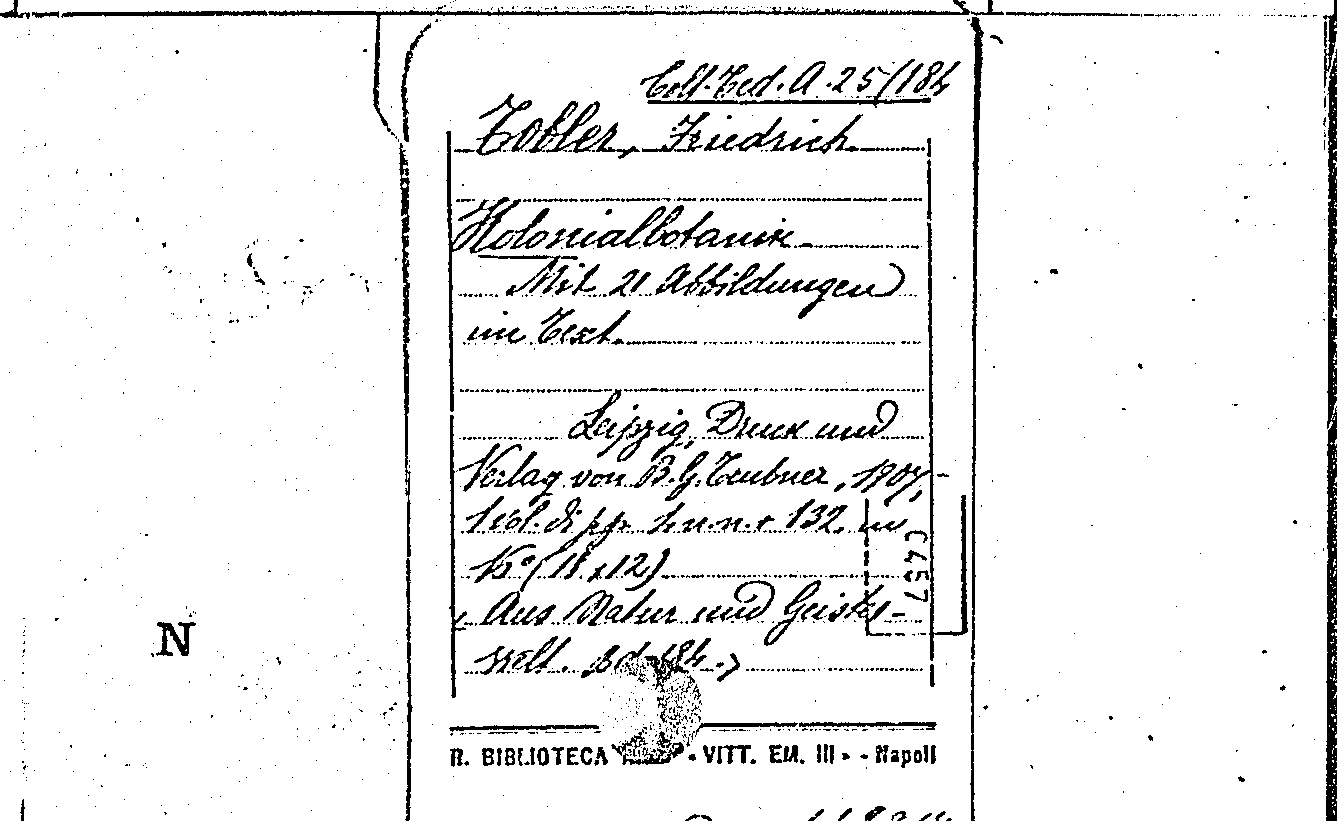 Coll. Ted. A. 25/184
Tobler, Friedrich.
Kolonialbotanik.
Mit 21 Abbildungen
im Text.
Leipzig, Druck und
Verlag von B. G. Teubner, 1907,
1 vol. di pp. n.n. + 132, in
(18 x 12)
Aus Natur und Geistes-
welt. Bd. 184.)
C457
N
R. BIBLIOTECA « VITT. EM. III » - Napoli